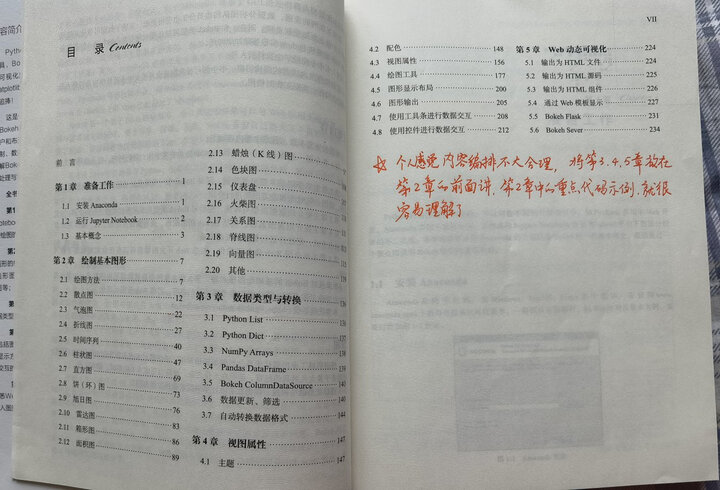 目 录 Contents
前 言
第 1 章 准备工作 1
1.1 安装 Anaconda 1
1.2 运行 Jupyter Notebook 1
1.3 基本概念 3
第 2 章 绘制基本图形 7
2.1 绘图方法 7
2.2 散点图 12
2.3 气泡图 22
2.4 折线图 27
2.5 时间序列 40
2.6 柱状图 47
2.7 直方图 69
2.8 饼（环）图 73
2.9 旭日图 76
2.10 雷达图 83
2.11 箱形图 86
2.12 面积图 89
2.13 蜡烛（K 线）图
2.14 色块图
2.15 仪表盘
2.16 火柴图
2.17 关系图
2.18 脊线图
2.19 向量图
2.20 其他 119
第 3 章 数据类型与转换 136
3.1 Python List
3.2 Python Dict 137
3.3 NumPy Arrays 139
3.4 Pandas DataFrame 139
3.5 Bokeh ColumnDataSource 140
3.6 数据更新、筛选 140
3.7 自动转换数据格式 144
第 4 章 视图属性 147
4.1 主题 147
VII
4.2 配色 148
4.3 视图属性 156
4.4 绘图工具 177
4.5 图形显示布局 200
4.6 图形输出 205
4.7 使用工具条进行数据交互 208
4.8 使用控件进行数据交互 212
第 5 章 Web 动态可视化 224
5.1 输出为 HTML 文件 224
5.2 输出为 HTML 源码 225
5.3 输出为 HTML 组件 226
5.4 通过 Web 模板显示 227
5.5 Bokeh Flask 231
5.6 Bokeh Sever 234
个人感觉内容编排不大合理，将第3.4.5章放在
第2章的前面讲，第2章中的重点代码示例，就很
容易理解了